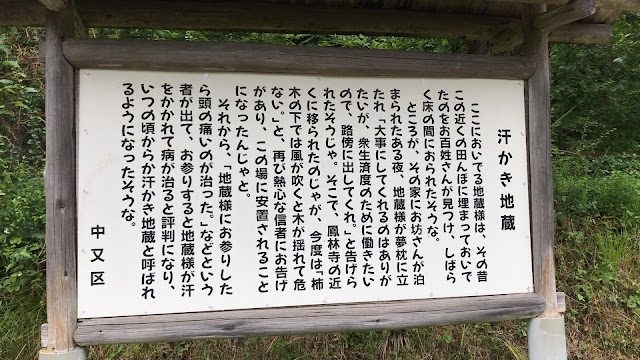 汗かき地蔵
ここにおいでる地蔵様は、その昔
この近くの田んぼに埋まっておいで
たのをお百姓さんが見つけ、しばら
く床の間におられたそうな。
ところが、その家にお坊さんが泊
まられたある夜、地蔵様が夢枕に立
たれ「大事にしてくれるのはありが
たいが、衆生済度のために働きたい
ので、路傍に出してくれ。」と告げら
れたそうじゃ。そこで、鳳林寺の近
くに移られたのじゃが、今度は、「柿
木の下では風が吹くと木が揺れて危
ない。」と、再び熱心な信者にお告げ
があり、この場に安置されること
になったんじゃと。
それから、「地蔵様にお参りした
ら頭の痛いのが治った。」などという
者が出て、お参りすると地蔵様が汗
をかかれて病が治ると評判になり、
いつの頃からか汗かき地蔵と呼ばれ
るようになったそうな。
中又区